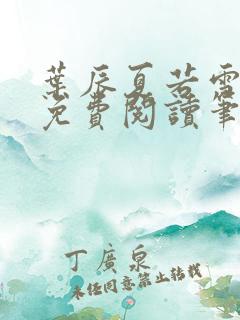 葉辰夏若雪
免費閱讀筆
丁廣泉
未经同意禁止转载